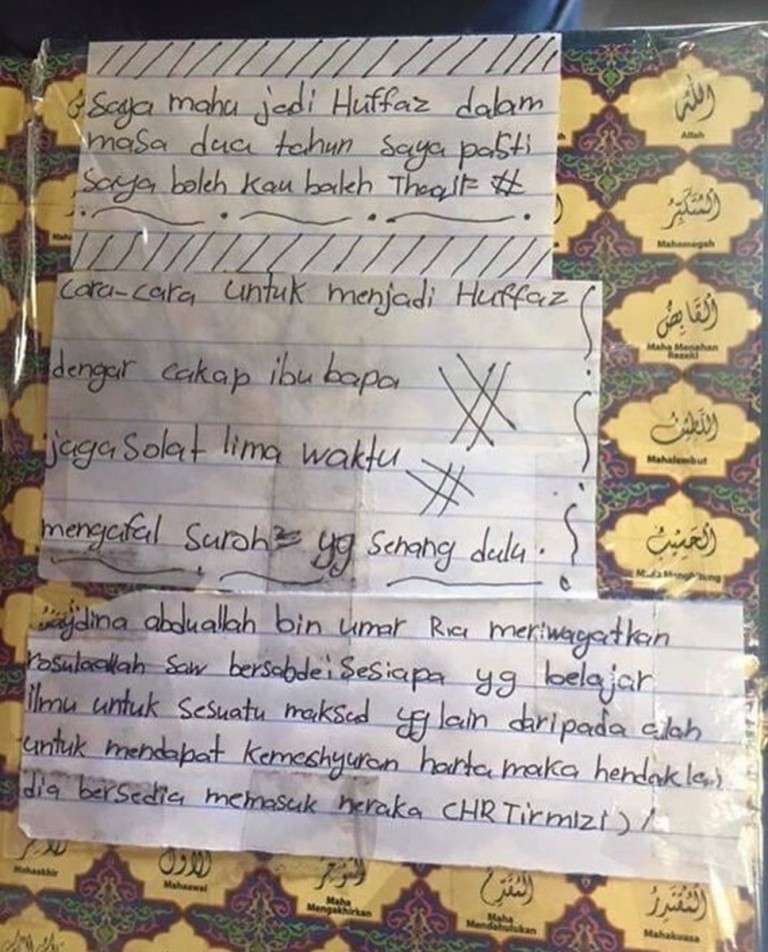 Saya mahu jadi Huffaz dalam
masa dua tahun saya pasti
saya boleh Kau boleh Thoqif #
cara-cara untuk menjadi Huffaz
dengar cakap ibu bapa
jaga Solat lima waktu
mengafal Suroh² yg Senang dulu.
abduallah bin umar Ra meriwayatkan
rosulaallah Saw bersabda: Sesiapa yg belajar
ilmu untuk sesuatu maksud yg lain daripada alah
untuk mendapat kemeshyuran harta maka hendaklai
dia bersedia memasuk neraka (HR Tirmizi)
الله
Allah
المتكبر
Mahamegah
القابض
Maha Menahan
Rezeki
اللطيف
Mahalembut
الحسيب
Mahaakhir
الأول
Mahaawal
المؤخر
Maha
Mengakhirkan
المقدم
Maha
Mendahulukan
المقتدر
Mahakuasa